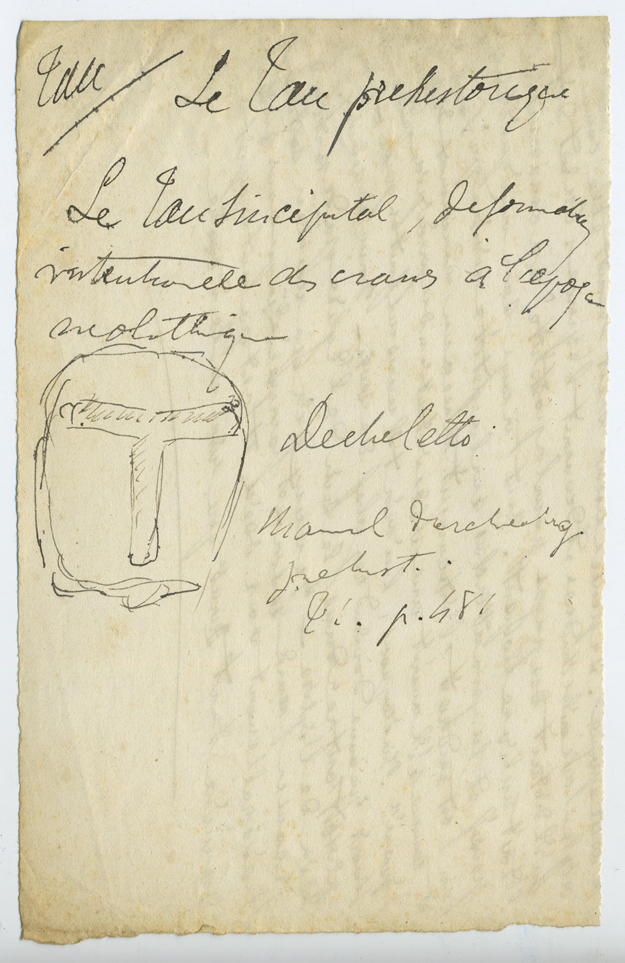 Tau
Le Tau préhistorique
Le Tau sincipital, déformation
intentionelle des cranes à l'époque
neolithique
Dechelette
Manuel d'archeolog
prehist.
T1. p. 481